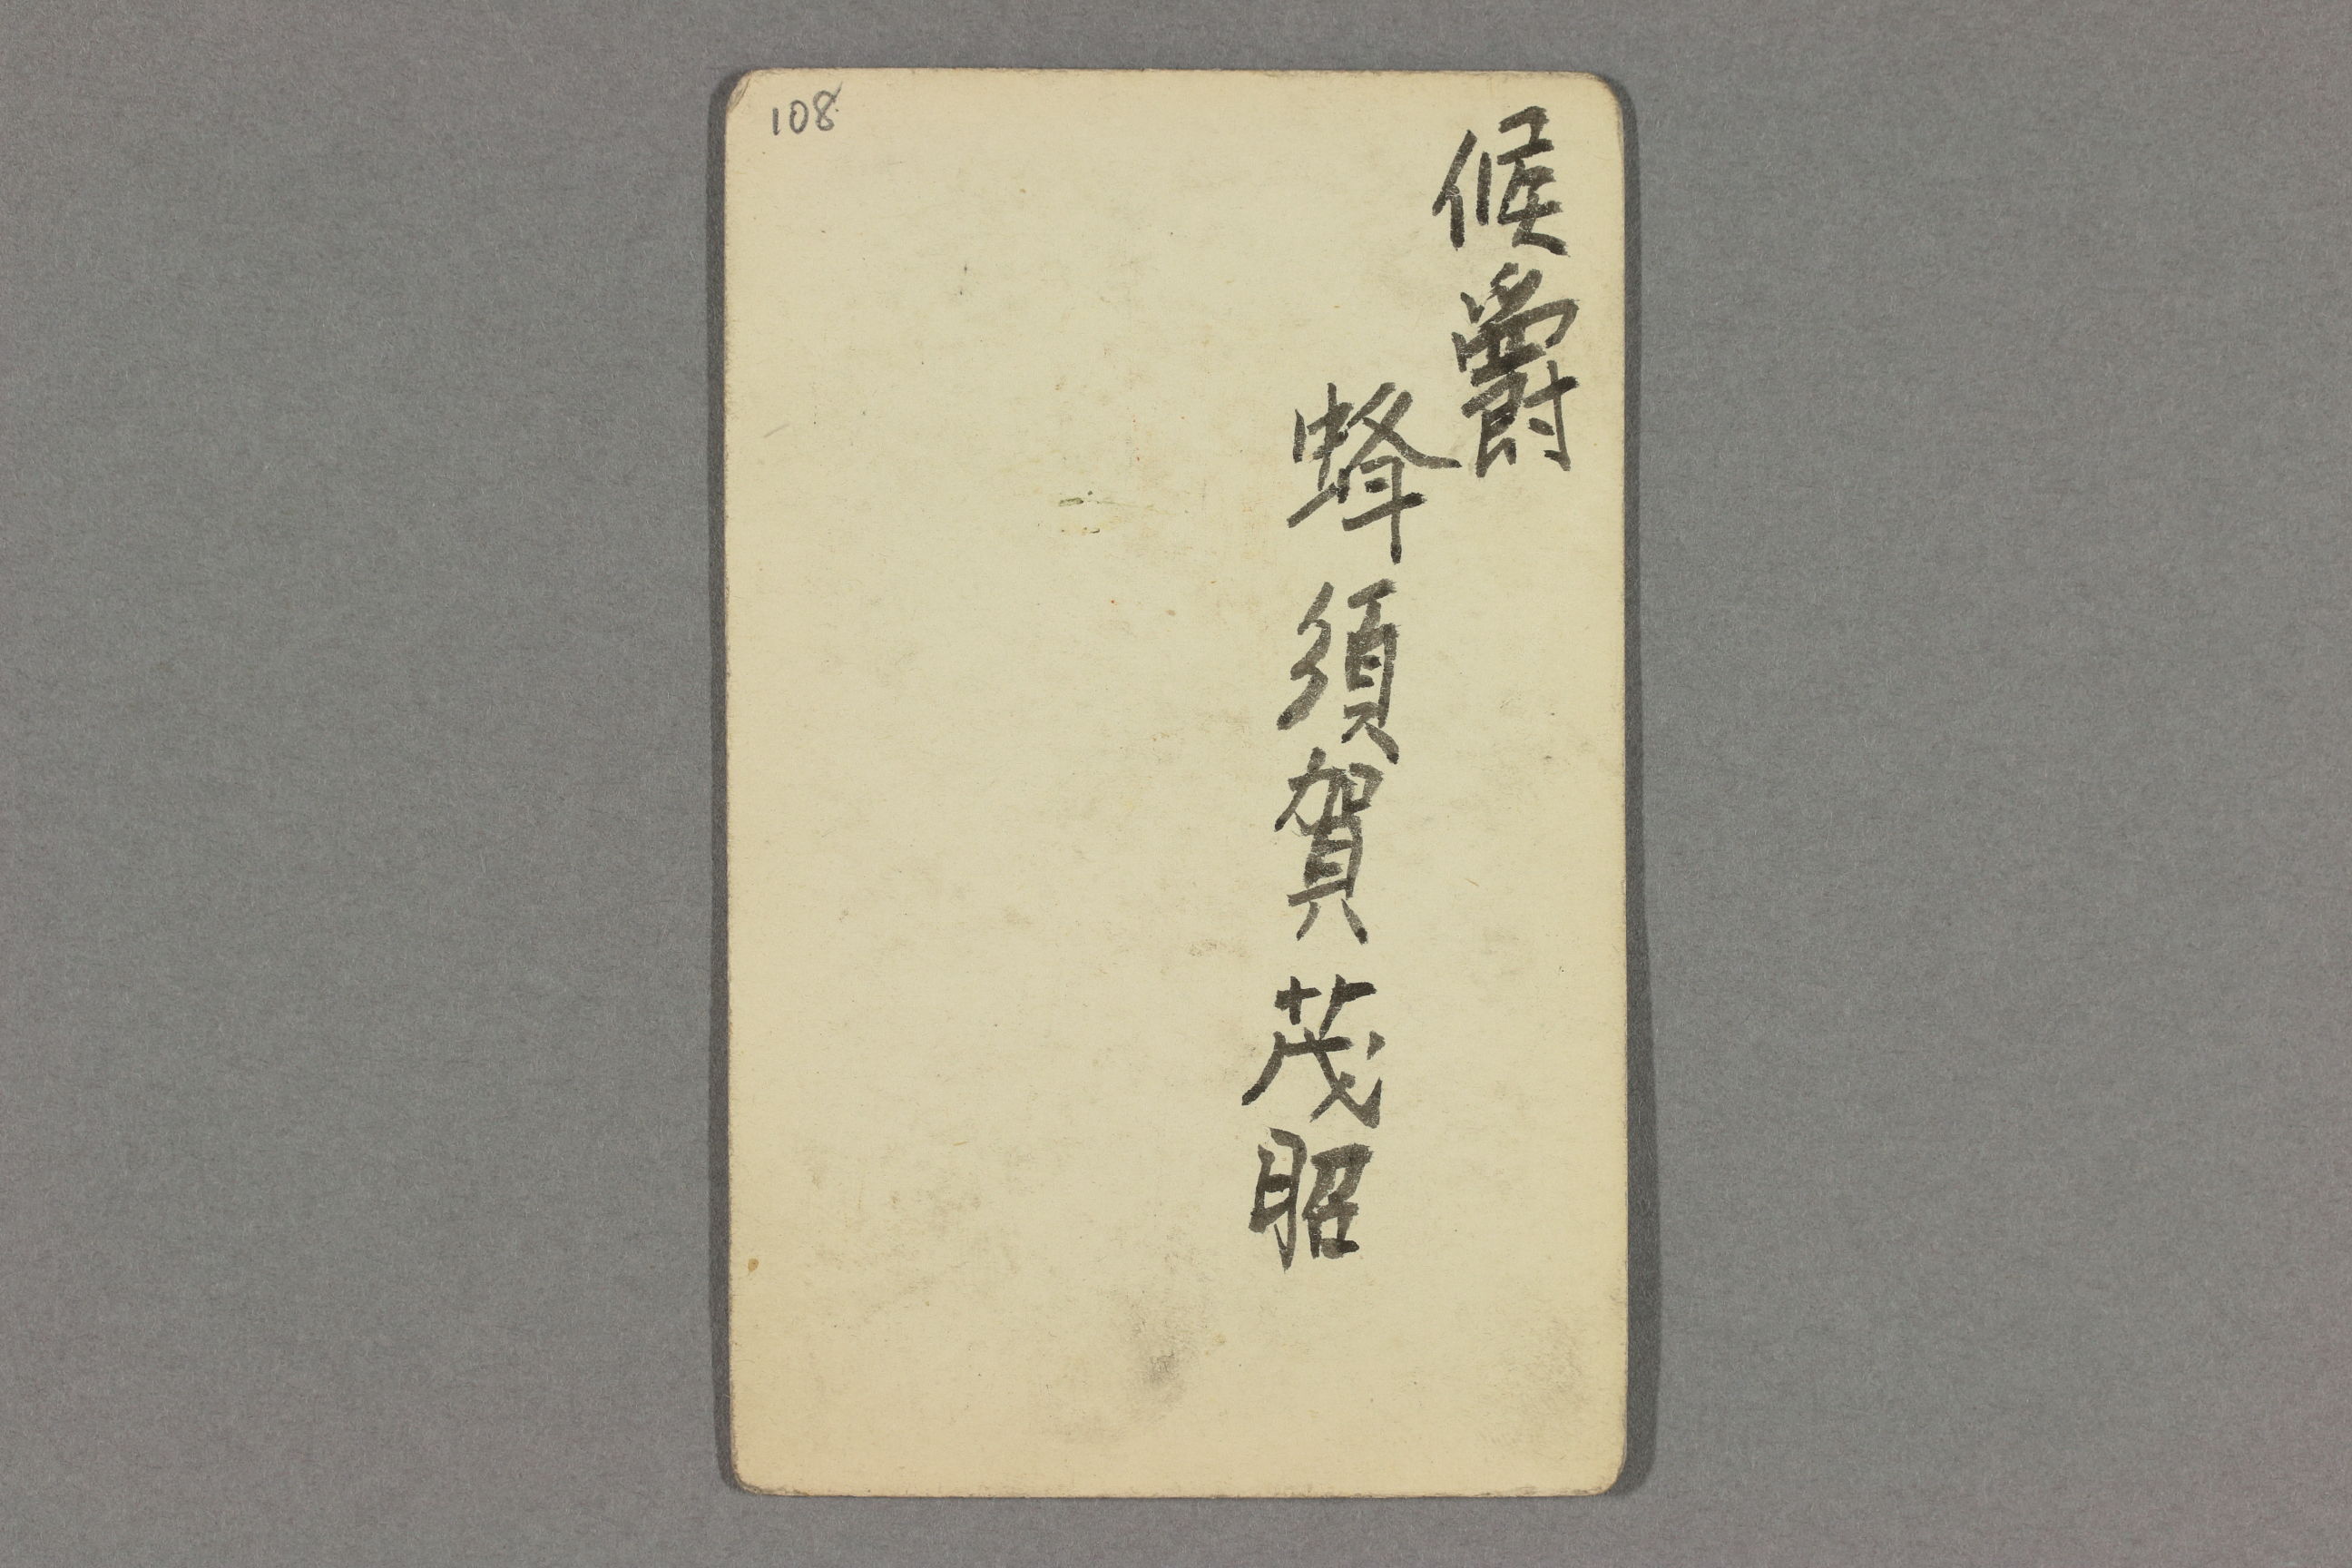 108
候爵
蜂須賀茂昭